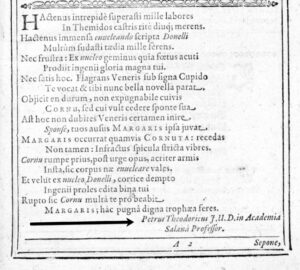 HActenus intrepidè superasti mille labores
In Themidos castris ritè diuq; merens.
Hactenus immensa enucleando scripta Donelli
Multùm sudasti tædia mille ferens.
Nec frustra: Ex nucleo geminus quia fœtus acuti
Prodit ingenii gloria magna tui.
Nec satis hoc. Flagrans Veneris sub signa Cupido
Te vocat & tibi nunc bella novella parat.
Objicit en durum, non expugnabile cuivis
CORNU, sed cui vult cedere sponte sua.
Ast hoc non dubites Veneris certamen inire
Sponse, tuos ausus MARGARIS ipsa juvat.
MARGARIS occurrat quamvis CORNUTA: recedas
Non tamen: Infractus spicula stricta vibres.
Cornu rumpe prius, post urge opus, acriter armis
Insta, sic corpus næ enucleare vales.
Et velut ex nucleo Donelli, cortice dempto
Ingenii proles edita bina tui
Rupto sic Cornu multa te pro beabit
MARGARIS; hâc pugnâ digna trophæa feres.
Petrus Theodoricus J. U. D. in Academia
Salanâ Professor.
A 2 Sepone,